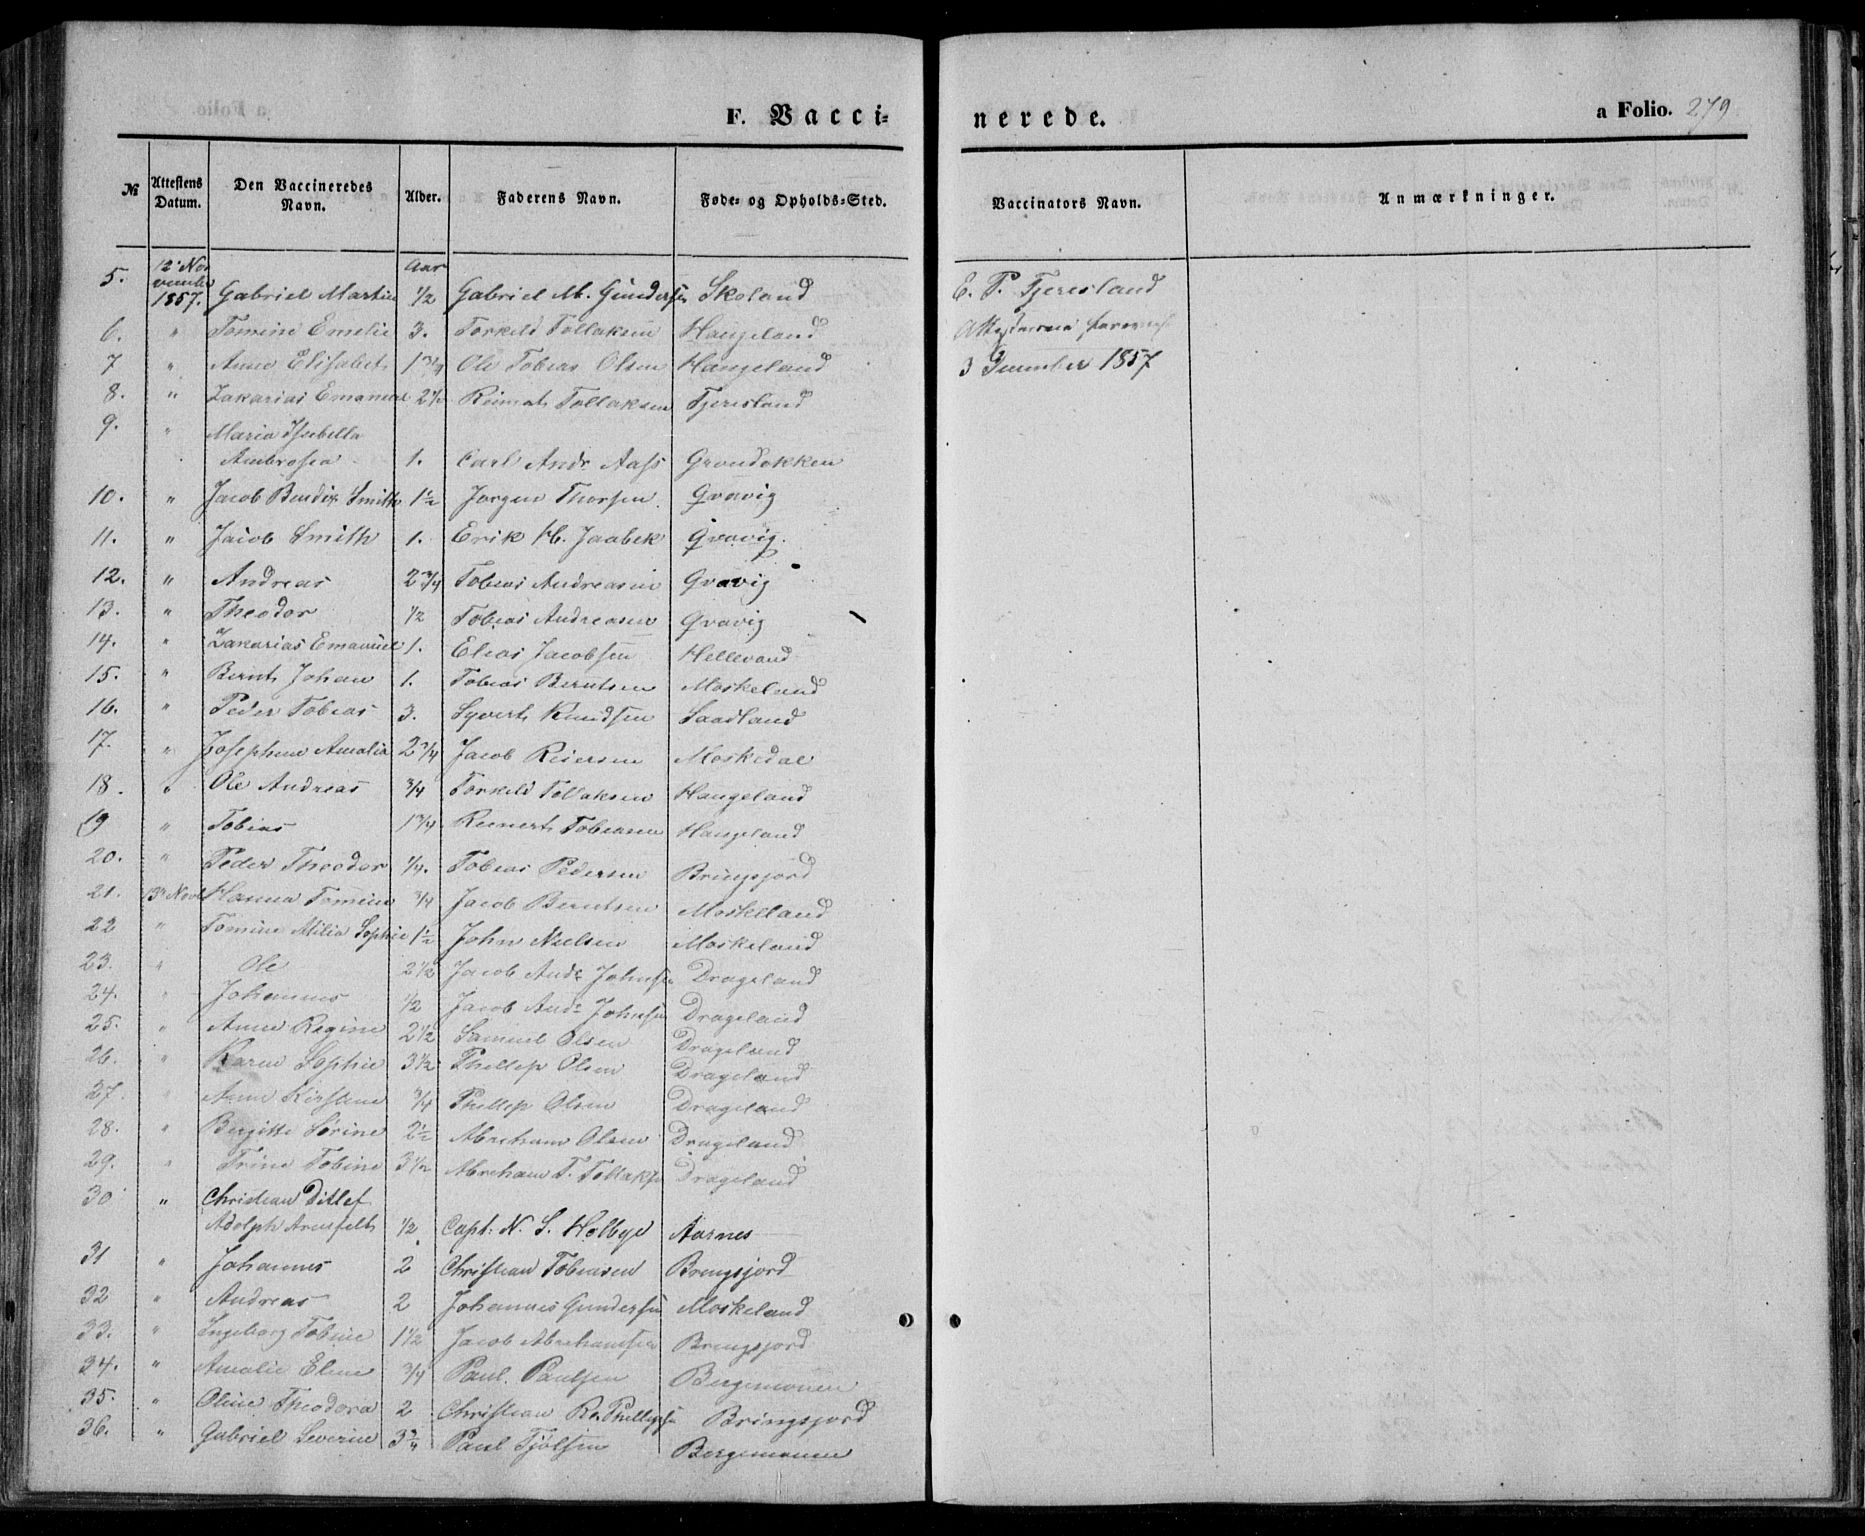 F. Vacci=
nerede.
a Folio. 279
№ Attestens Datum. Den Vaccineredes Navn. Alder. Faderens Navn. Føde- og Opholds-Sted. Vaccinators Navn. Anmærkninger.
Aar
5. 12 November 1857. Gabriel Martin 1/2 Gabriel M. Gundersen Skoland E. P. Fjeresland
6. " Tomine Emelie 3. Torkild Tollaksen Haugeland Attesterne
7 " Anne Elisabet 1 3/4 Ole Tobias Olsen Haugeland 3 December 1857
8. " Zakarias Emanuel 2 1/2 Reinert Tollaksen Fjeresland
9. " Maria Isabella
Ambrosia 1. Carl Andr Aass Grondokken
10. " Jacob Bendix Smith 1 1/2 Jørgen Thorsen. Qvavig
11. " Jacob Smith 1. Erik H. Jaabek Qvavig.
12. " Andreas 2 3/4 Tobias Andreasen Qvavig
13. " Theodor 1/2 Tobias Andreasen Qvavig
14. " Zakarias Emanuel 1. Elias Jacobsen Hellevand
15. " Bernt Johan 1. Tobias Berntsen Moskeland
16. " Peder Tobias 3. Syvert Knudsen Saadland
17. " Josephine Amalia 2 3/4 Jacob Reiersen Moskedal
18. " Ole Andreas 3/4 Torkild Tollaksen Haugeland
19 " Tobias 1 3/4 Reinert Tobiasen Haugeland
20. " Peder Theodor 1/4. Tobias Pedersen Bringsjord
21. 13 Novb Hanna Tomine 3/4 Jacob Berntsen Moskeland
22 " Tomine Milia Sophie 1 1/2 John Nielsen Moskeland
23. " Ole 2 1/2 Jacob Andr Johnsen Drageland
24. " Johannes 1/2 Jacob Andr Johnsen Drageland
25. " Anne Regine 2 1/2 Samuel Olsen Drageland
26. " Karen Sophie 3 1/2 Phillip Olsen Drageland
27. " Anne Kirstine 3/4 Phillip Olsen Drageland
28. " Birgitte Serine 2 1/2 Abraham Olsen Drageland
29. " Trine Tobine 3 1/2 Abraham T. Tollaksen Drageland
30 " Christian Ditlef
Adolph Arnsfelt 1/2. Capt. N. S. Holbye Aarnes
31 " Johannes 2 Christian Tobiasen Bringsjord
32 " Andreas 2 Johannes Gundersen Moskeland
33. " Ingeborg Tobine 1 1/2 Jacob Abrahamsen Bringsjord
34. " Amalie Eline 3/4 Paul. Paulsen Bergemonen
35. " Oline Theodora 2 Christian Phillipsen Bringsjord
36. " Gabriel Severine 3 3/4 Paul Tjølsen Bergemonen